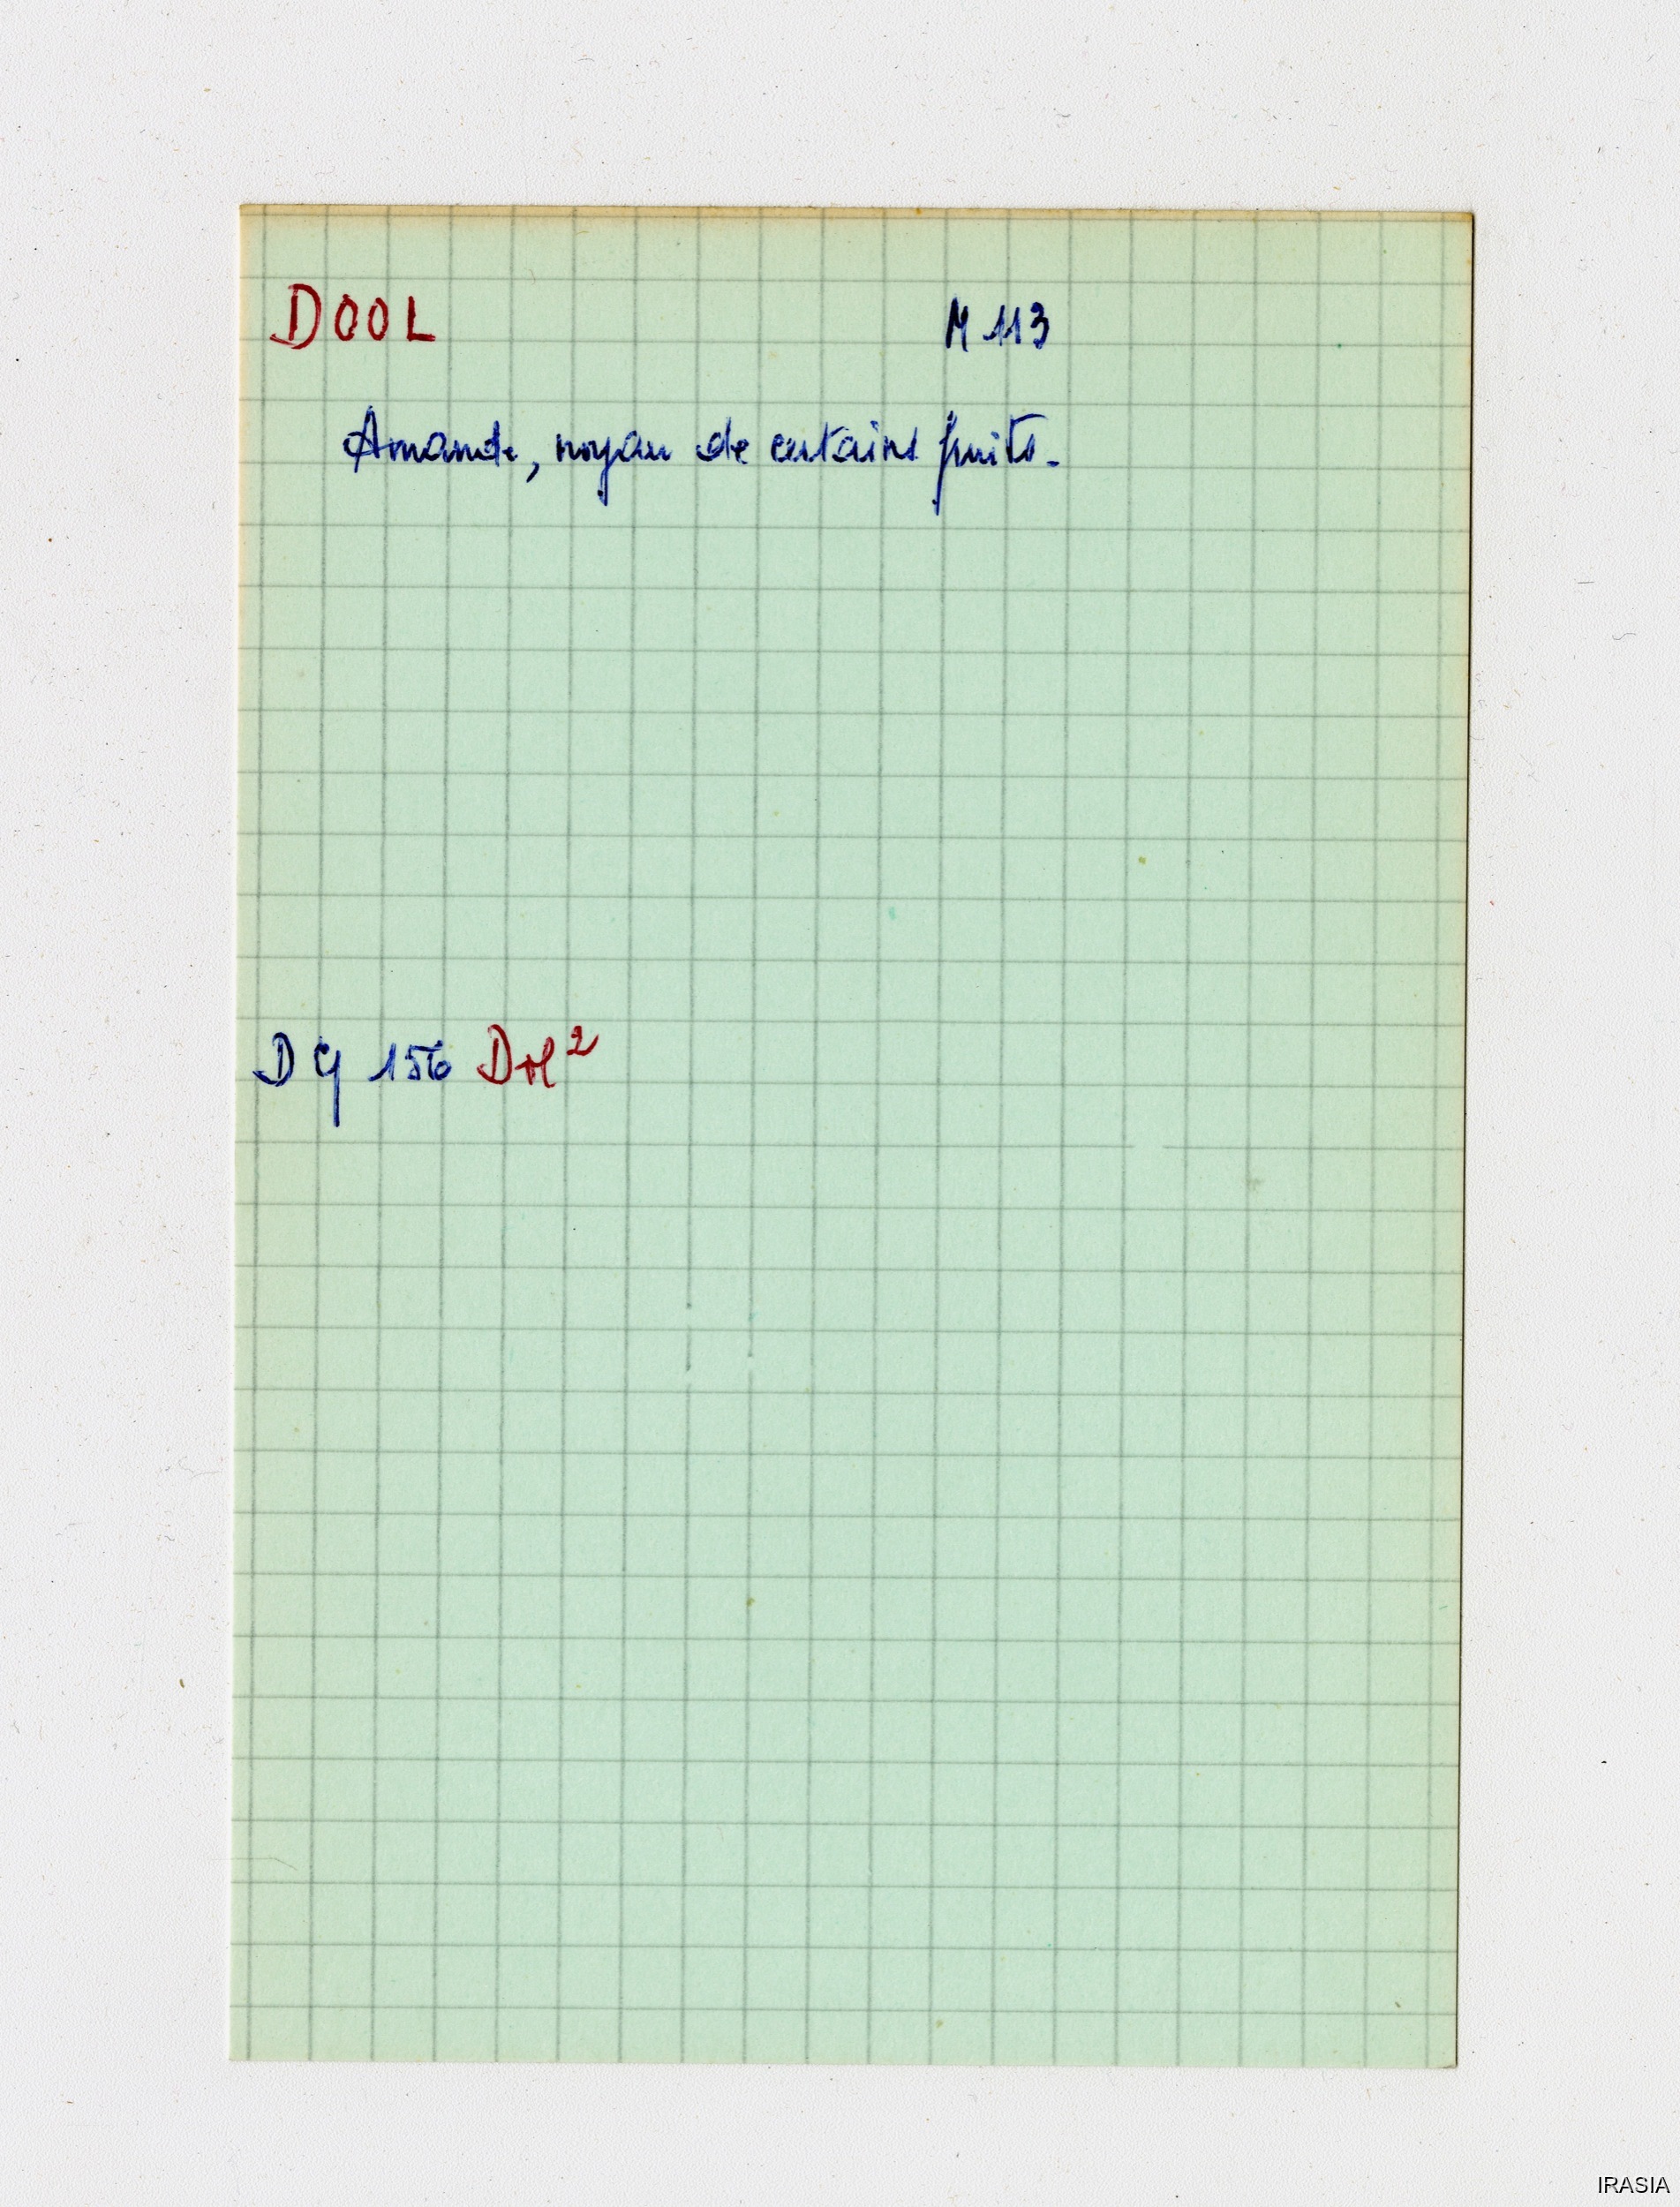 DOOL M 113
Amande, noyau de certains fruits.
DG 156 Dol²
IRASIA